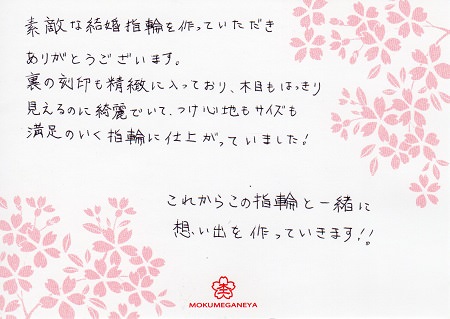 素敵な結婚指輪を作っていただき
ありがとうございます。
裏の刻印も精緻に入っており、木目もはっきり
見えるのに綺麗でいて、つけ心地もサイズも
満足のいく指輪に仕上がっていました!
これからこの指輪と一緒に
想い出を作っていきます!!
MOKUMEGANEYA